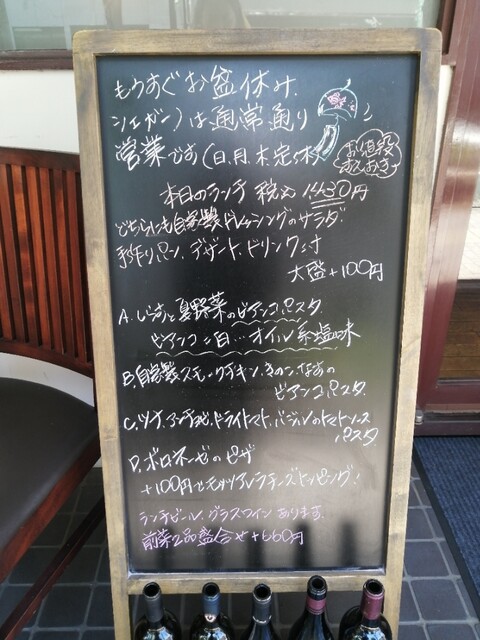 もうすぐお盆休み、
シェガーノは通常通り
営業です(日、月、木、定休)
お値段
すえおき
本日のランチ 税込 1430円
どちらにも自家製ドレッシングのサラダ
手作りパン、デザート、ドリンク付
大盛+100円
A. しらすと夏野菜のビアンコパスタ
ビアンコ=白…オイル系塩味
B. 自家製スモークチキン、きのこ、なすの
ビアンコパスタ
C. ツナ、アンチョビ、ドライトマト、バジルのトマトソース
パスタ
D. ボロネーゼのピザ
+100円でモッツァレラチーズトッピング!
ランチビール、グラスワインあります。
前菜2品盛合せ+660円